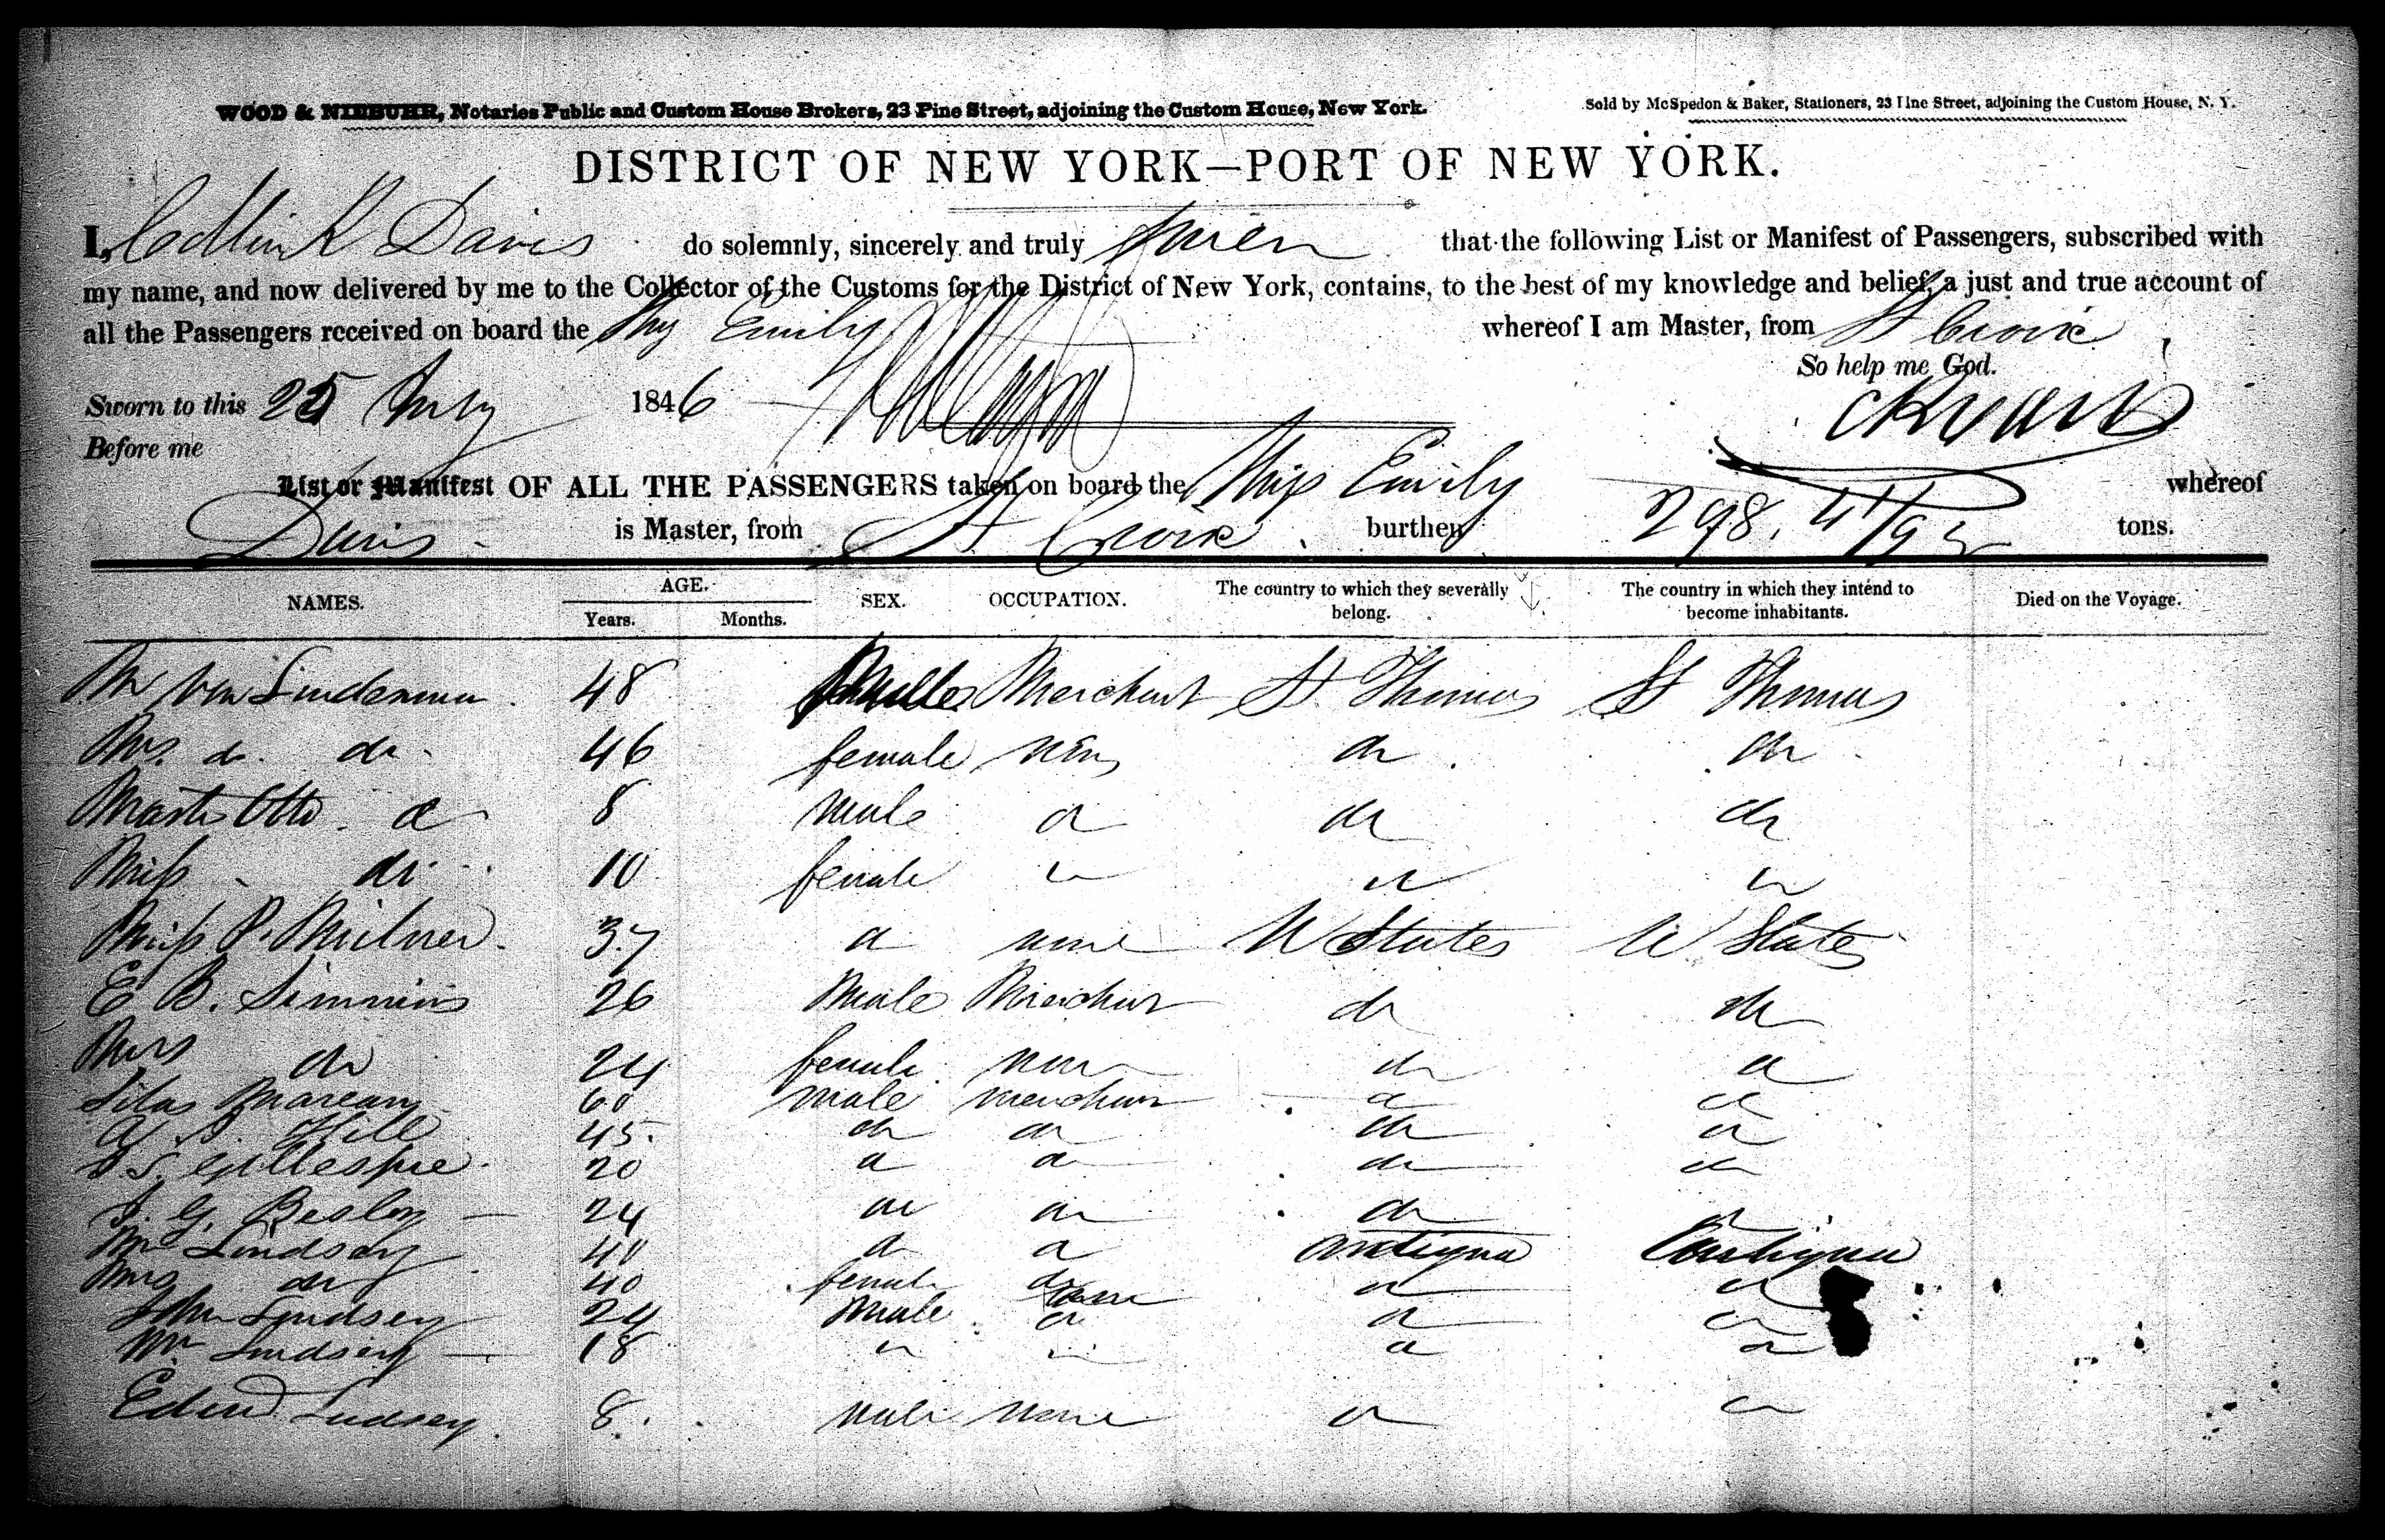 WOOD & NIEBUHR, Notaries Public and Custom House Brokers, 23 Pine Street, adjoining the Custom House, New York.
Sold by McSpedon & Baker, Stationers, 23 Pine Street, adjoining the Custom House, N. Y.
DISTRICT OF NEW YORK—PORT OF NEW YORK.
I, Codlin K Davis do solemnly, sincerely and truly swear that the following List or Manifest of Passengers, subscribed with
my name, and now delivered by me to the Collector of the Customs for the District of New York, contains, to the best of my knowledge and belief, a just and true account of
all the Passengers received on board the Ship Emily whereof I am Master, from St Croix
So help me God.
Sworn to this 25 July 1846
Before me
List or Manifest OF ALL THE PASSENGERS taken on board the Ship Emily whereof
Davis is Master, from St Croix burthen 298. 41/95 tons.
NAMES. AGE. SEX. OCCUPATION. The country to which they severally belong. The country in which they intend to become inhabitants. Died on the Voyage.
Years. Months.
Mr Van Lindeman 48 Male Merchant St Thomas St Thomas
Mrs. do. do. 46 female none do do
Master Otto do 8 male do do do
Miss do 10 female do do do
Miss P. Milner. 37 do none U States U States
E B. Simmins 26 Male Merchant do do
Mrs do 24 female none do do
Silas Marean 60 male merchant do do
A S. Hill 45 do do do do
Gillespie 20 do do do do
J. G. Besley 24 do do do do
Mr Lindsey 40 do do Antigua Antigua
Mrs do 40 female none do do
John Lindsey 24 male do do do
Mr Lindsey 18 do do do do
Edwd Lindsey 8 male none do do